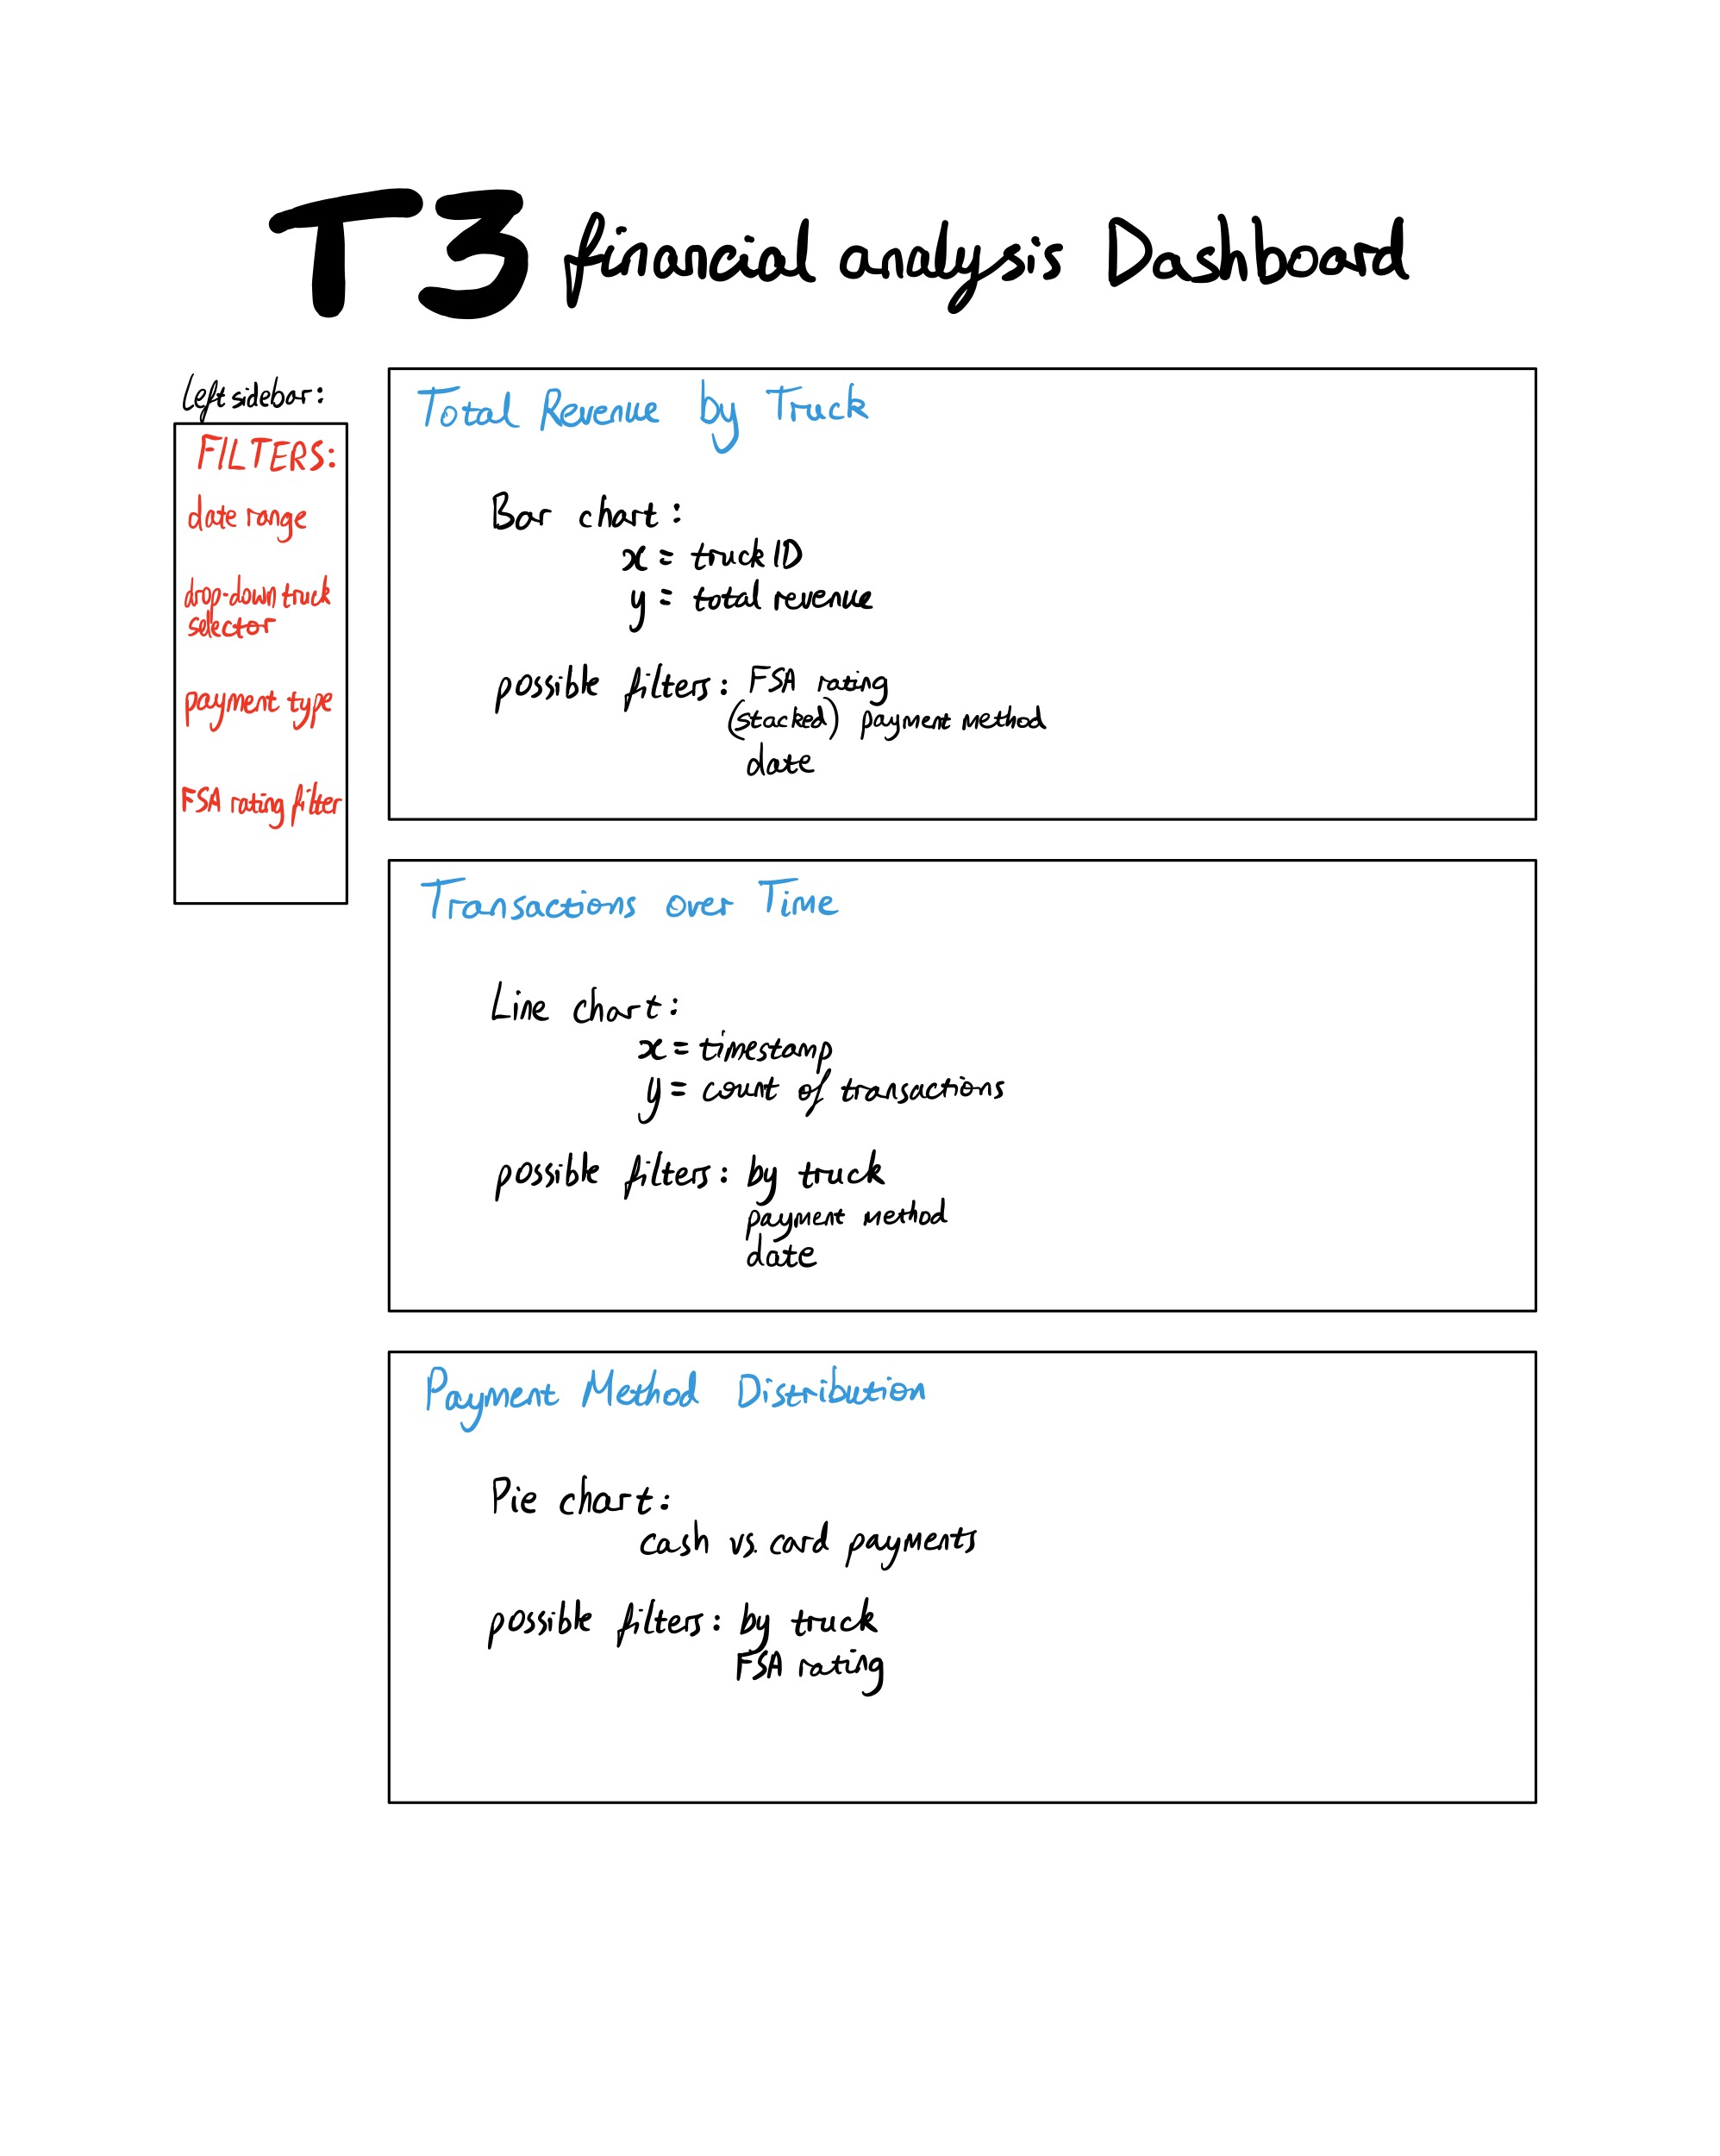 T3 financial analysis Dashboard
Left sidebar:
FILTERS:
date range
drop-down truck
selector
payment type
FSA rating filter
Total Revenue by Truck
Bar chart:
x = truck ID
y = total revenue
possible filters: FSA rating
(stacked) payment method
date
Transactions over Time
Line chart:
x = timestamp
y = count of transactions
possible filters: by truck
payment method
date
Payment Method Distribution
Pie chart:
cash vs. card payments
possible filters: by truck
FSA rating